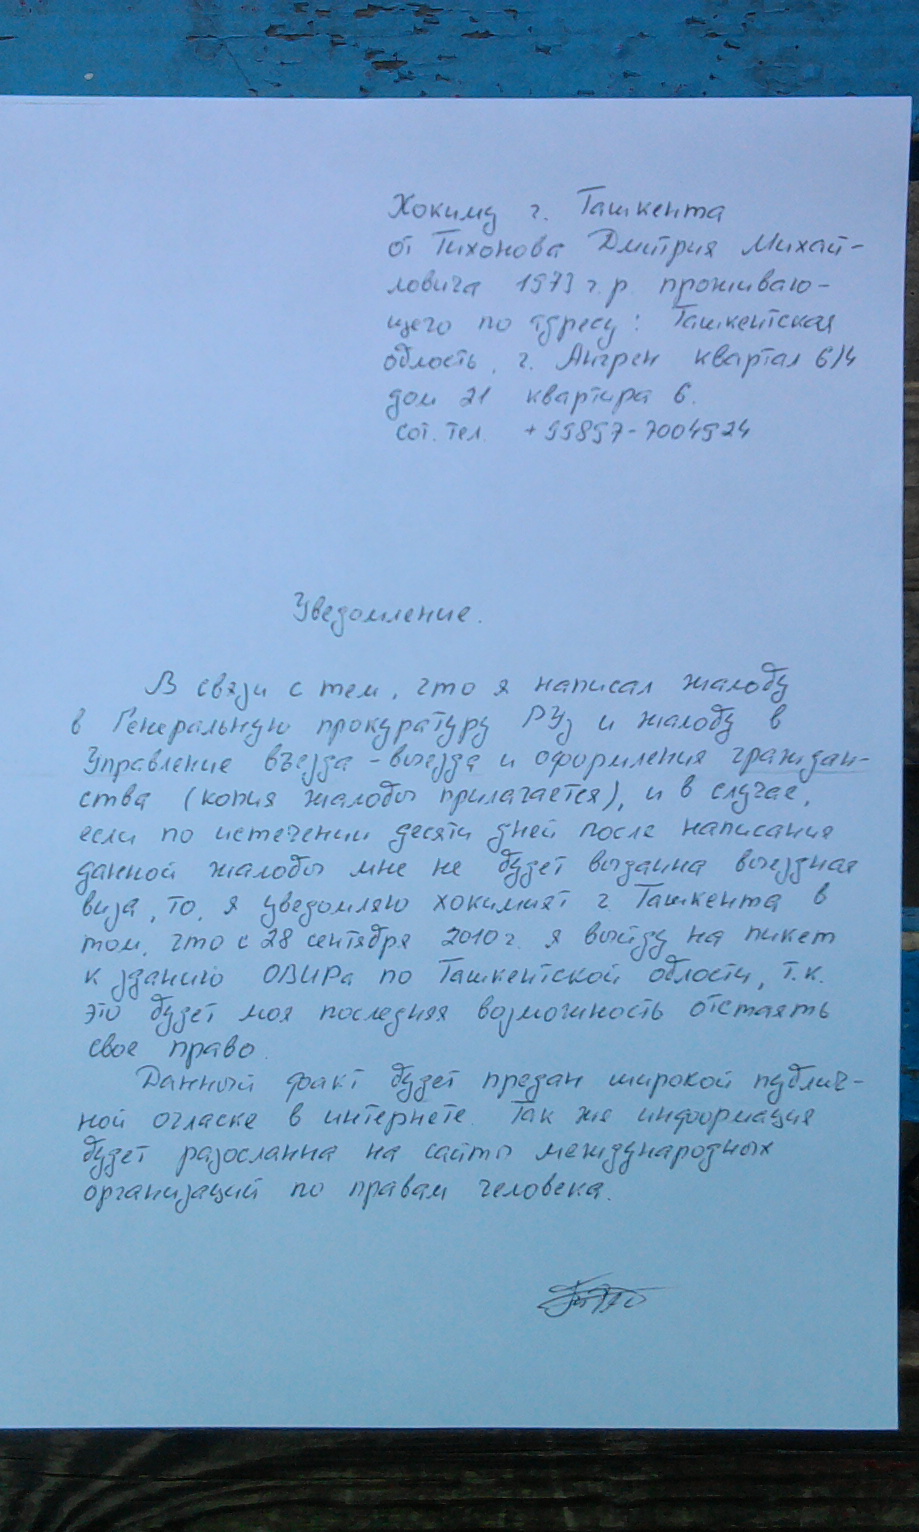 Хокиму г. Ташкента
от Тихонова Дмитрия Михай-
ловича 1973 г.р. проживаю-
щего по адресу: Ташкентская
область, г. Ангрен квартал 6/4
дом 21 квартира 6.
сот. тел. +99897-7004924
Уведомление.
В связи с тем, что я написал жалобу
в Генеральную прокуратуру РУз и жалобу в
Управление въезда-выезда и оформления граждан-
ства (копия жалобы прилагается), и в случае,
если по истечении десяти дней после написания
данной жалобы мне не будет выданна выездная
виза, то, я уведомляю хокимият г. Ташкента в
том, что с 28 сентября 2010 г. я выйду на пикет
к зданию ОВИРа по Ташкентской области, т.к.
это будет моя последняя возможность отстаять
свое право.
Данный факт будет предан широкой публич-
ной огласке в интернете. Так же информация
будет разосланна на сайты международных
организаций по правам человека.